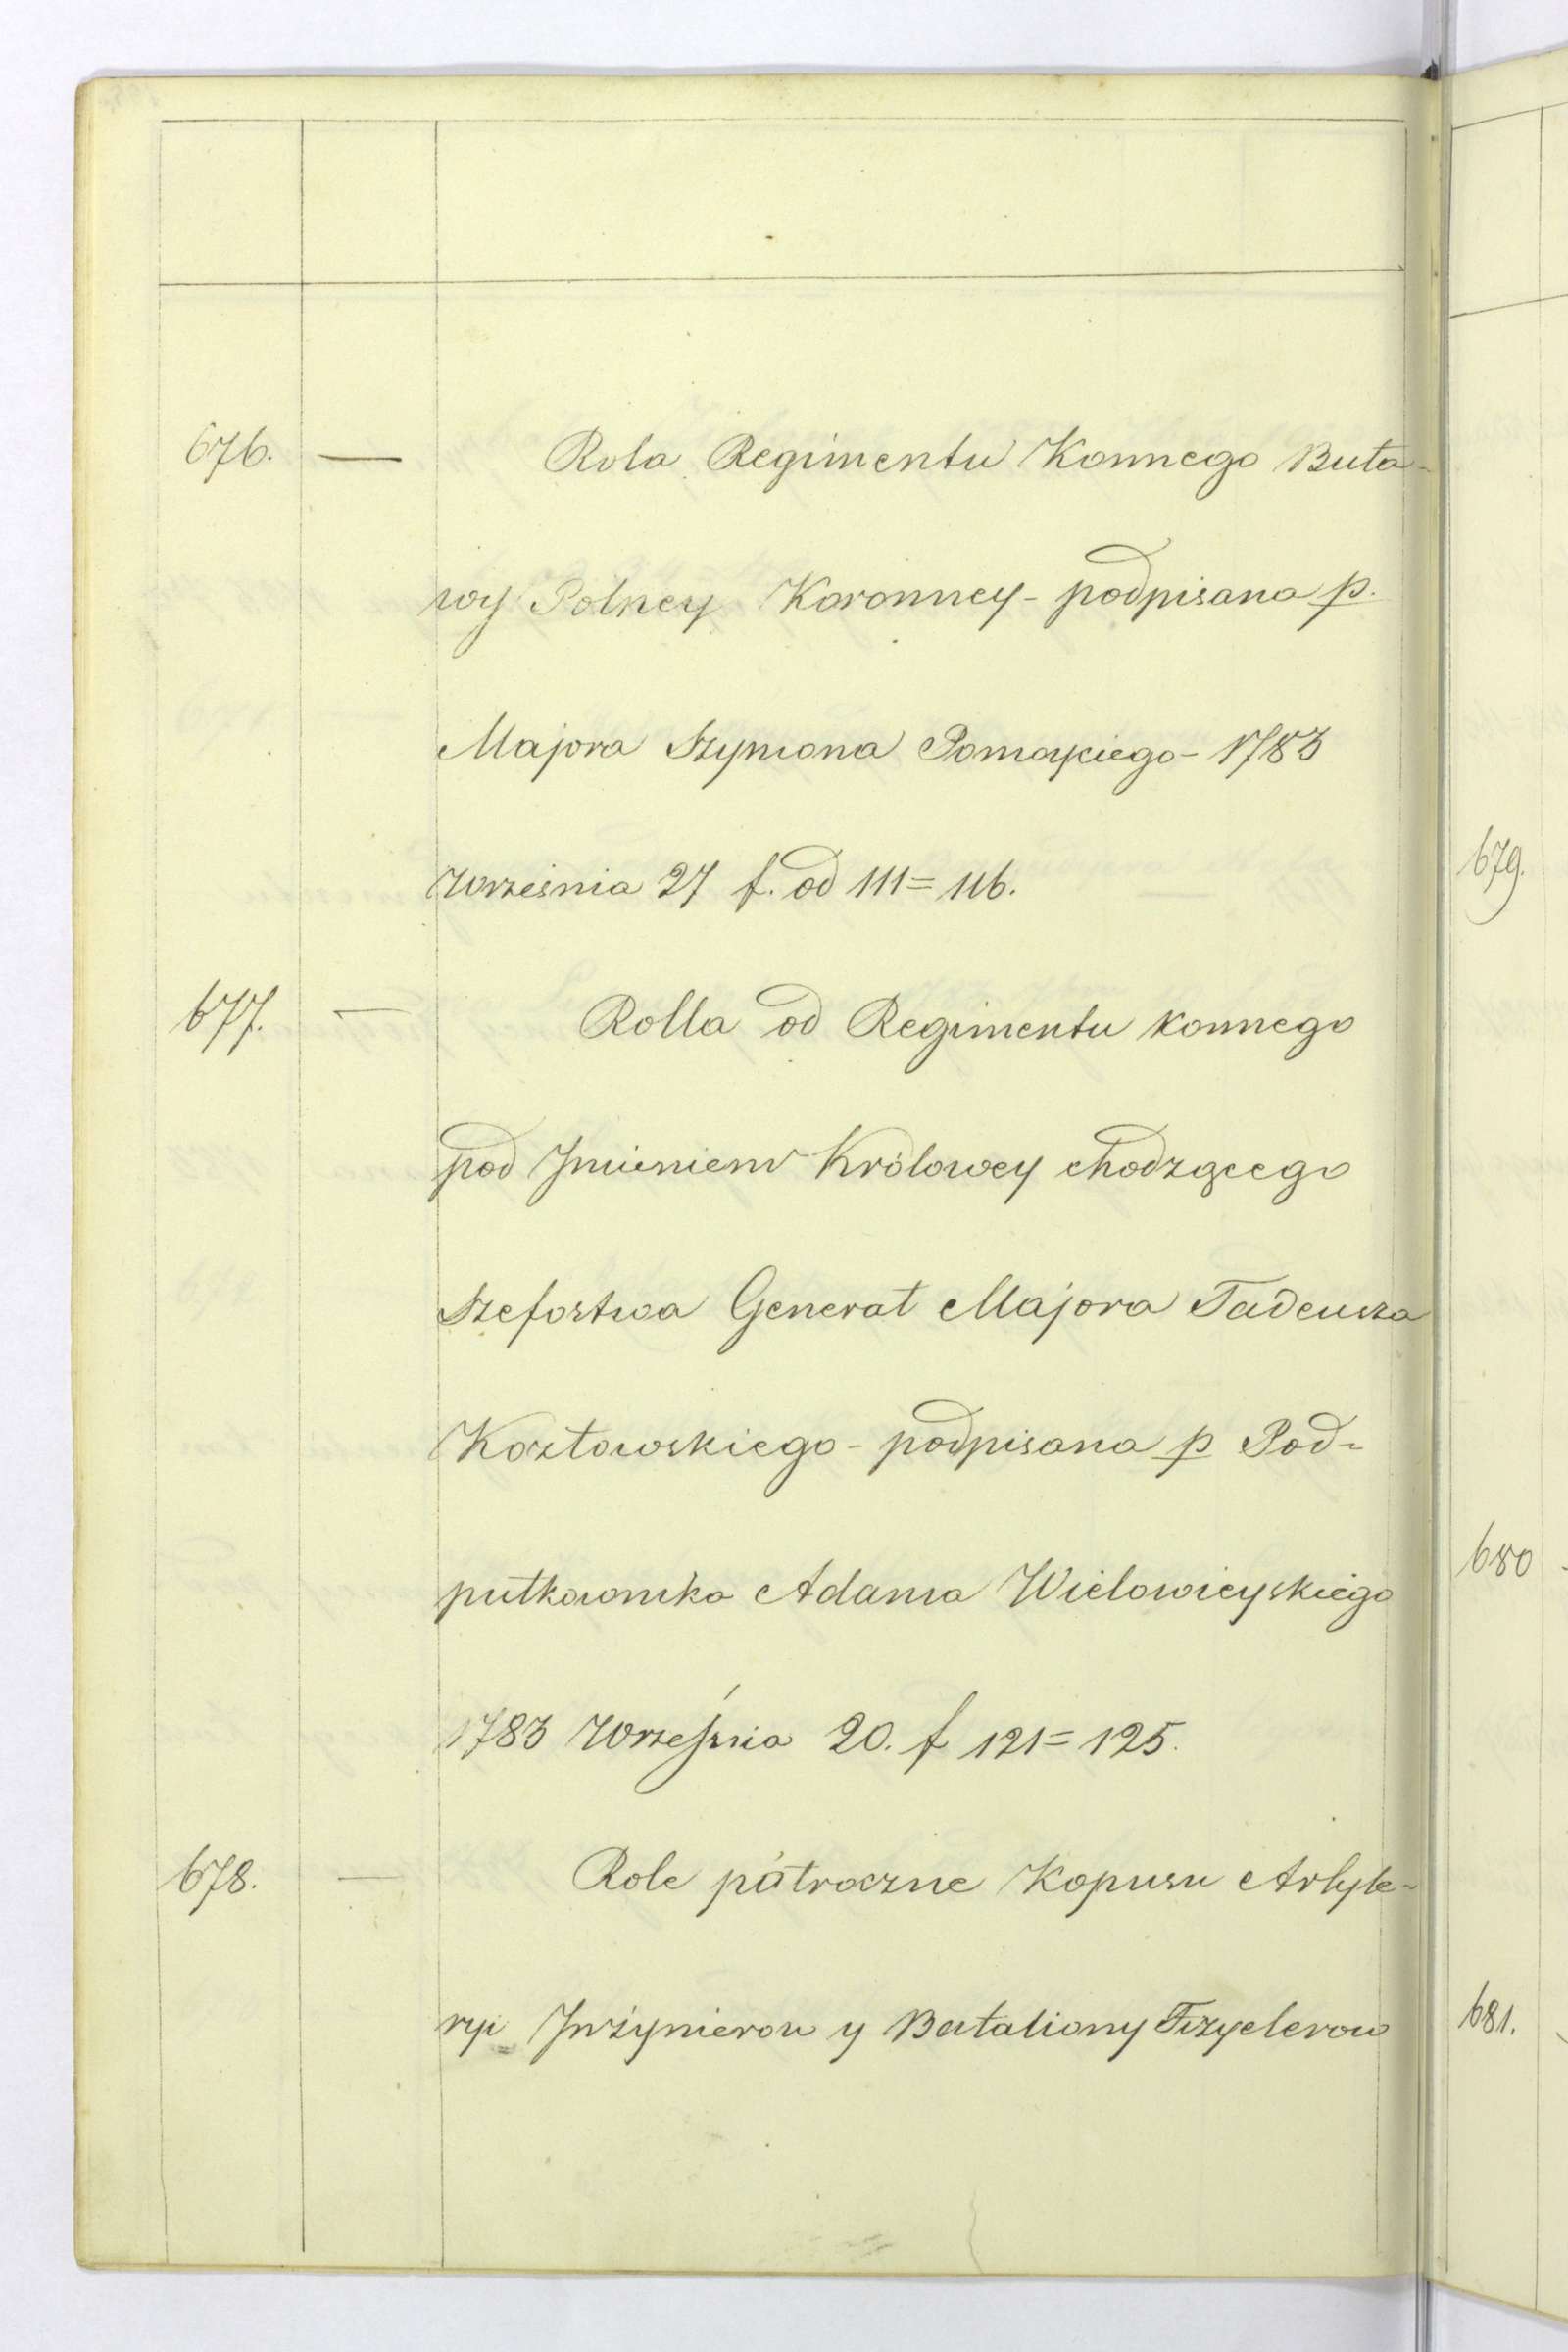 676. — Rola Regimentu Konnego Buła-
wy Polney Koronney - podpisana p.
Majora Szymona - 1783
Września 27 f. od 111 = 116.
677. — Rolla od Regimentu konnego
pod Jmieniem Krolowey chodzącego
Szefostwa Generał Majora Tadeusza
Kozłowskiego - podpisana p Pod-
pułkownika Adama Wielowieyskiego
1783 Września 20. f 121 = 125.
678. — Role pátroczne Kopusu Artyle-
ryi Jnżynierow y Bataliony Fizylerow
679.
680
681.